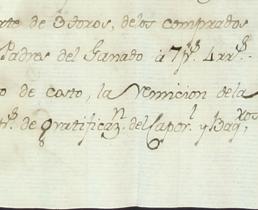 rto de 3 toros, delos comprados
Padres del Ganado à 7 p.s 4 rr.s
o de costo, la Venicion dela
de gratificaz.n del Capor.l y Baq.ros